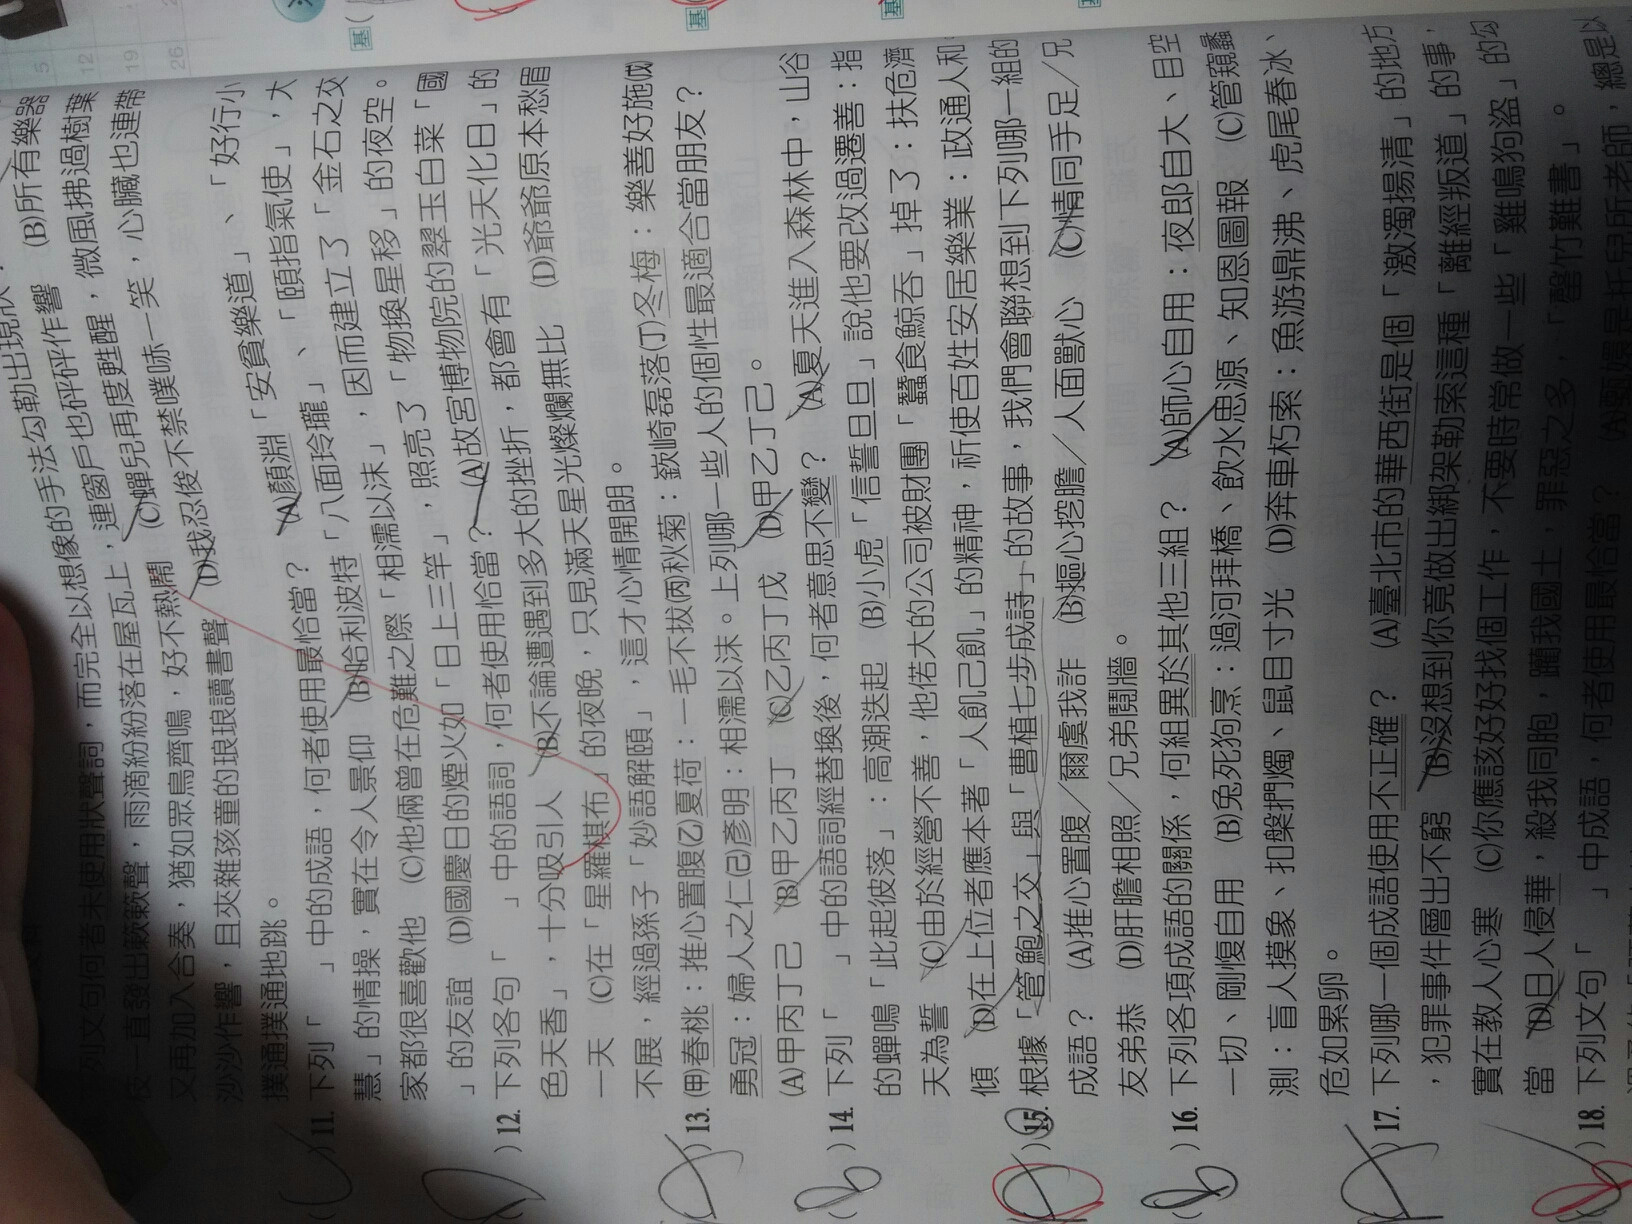 列文句何者未使用狀聲詞，而完全以想像的手法勾勒出現狀？ (B)所有樂器
一直發出簌簌聲，雨滴紛紛落在屋瓦上，連窗戶也砰砰作響
又再加入合奏，猶如眾鳥齊鳴，好不熱鬧 (C)蟬兒再度甦醒，微風拂過樹葉
沙沙作響，且夾雜孩童的琅琅讀書聲 (D)我忍俊不禁噗哧一笑，心臟也連帶
撲通撲通地跳。
11. 下列「　　」中的成語，何者使用最恰當？ (A)顏淵「安貧樂道」、「好行小
慧」的情操，實在令人景仰 (B)哈利波特「八面玲瓏」、「頤指氣使」，大
家都很喜歡他 (C)他倆曾在危難之際「相濡以沫」，因而建立了「金石之交
」的友誼 (D)國慶日的煙火如「日上三竿」，照亮了「物換星移」的夜空。
12. 下列各句「　　」中的語詞，何者使用恰當？ (A)故宮博物院的翠玉白菜「國
色天香」，十分吸引人 (B)不論遭遇到多大的挫折，都會有「光天化日」的
一天 (C)在「星羅棋布」的夜晚，只見滿天星光燦爛無比 (D)爺爺原本愁眉
不展，經過孫子「妙語解頤」，這才心情開朗。
13. (甲)春桃：推心置腹(乙)夏荷：一毛不拔(丙)秋菊：嶔崎磊落(丁)冬梅：樂善好施(戊)
勇冠：婦人之仁(己)彥明：相濡以沫。上列哪一些人的個性最適合當朋友？
(A)甲丙丁己 (B)甲乙丙丁 (C)乙丙丁戊 (D)甲乙丁己。
14. 下列「　　」中的語詞經替換後，何者意思不變？ (A)夏天進入森林中，山谷
的蟬鳴「此起彼落」：高潮迭起 (B)小虎「信誓旦旦」說他要改過遷善：指
天為誓 (C)由於經營不善，他偌大的公司被財團「蠶食鯨吞」掉了：扶危濟
傾 (D)在上位者應本著「人飢己飢」的精神，祈使百姓安居樂業：政通人和。
15. 根據「管鮑之交」與「曹植七步成詩」的故事，我們會聯想到下列哪一組的
成語？ (A)推心置腹／爾虞我詐 (B)摳心挖膽／人面獸心 (C)情同手足／兄
友弟恭 (D)肝膽相照／兄弟鬩牆。
16. 下列各項成語的關係，何組異於其他三組？ (A)師心自用：夜郎自大、目空
一切、剛愎自用 (B)兔死狗烹：過河拜橋、飲水思源、知恩圖報 (C)管窺蠡
測：盲人摸象、扣槃捫燭、鼠目寸光 (D)奔車朽索：魚游鼎沸、虎尾春冰、
危如累卵。
17. 下列哪一個成語使用不正確？ (A)臺北市的華西街是個「激濁揚清」的地方
，犯罪事件層出不窮 (B)沒想到你竟做出綁架勒索這種「離經叛道」的事，
實在教人心寒 (C)你應該好好找個工作，不要時常做一些「雞鳴狗盜」的勾
當 (D)日人侵華，殺我同胞，躪我國土，罪惡之多，「罄竹難書」。
18. 下列文句「　　」中成語，何者使用最恰當？